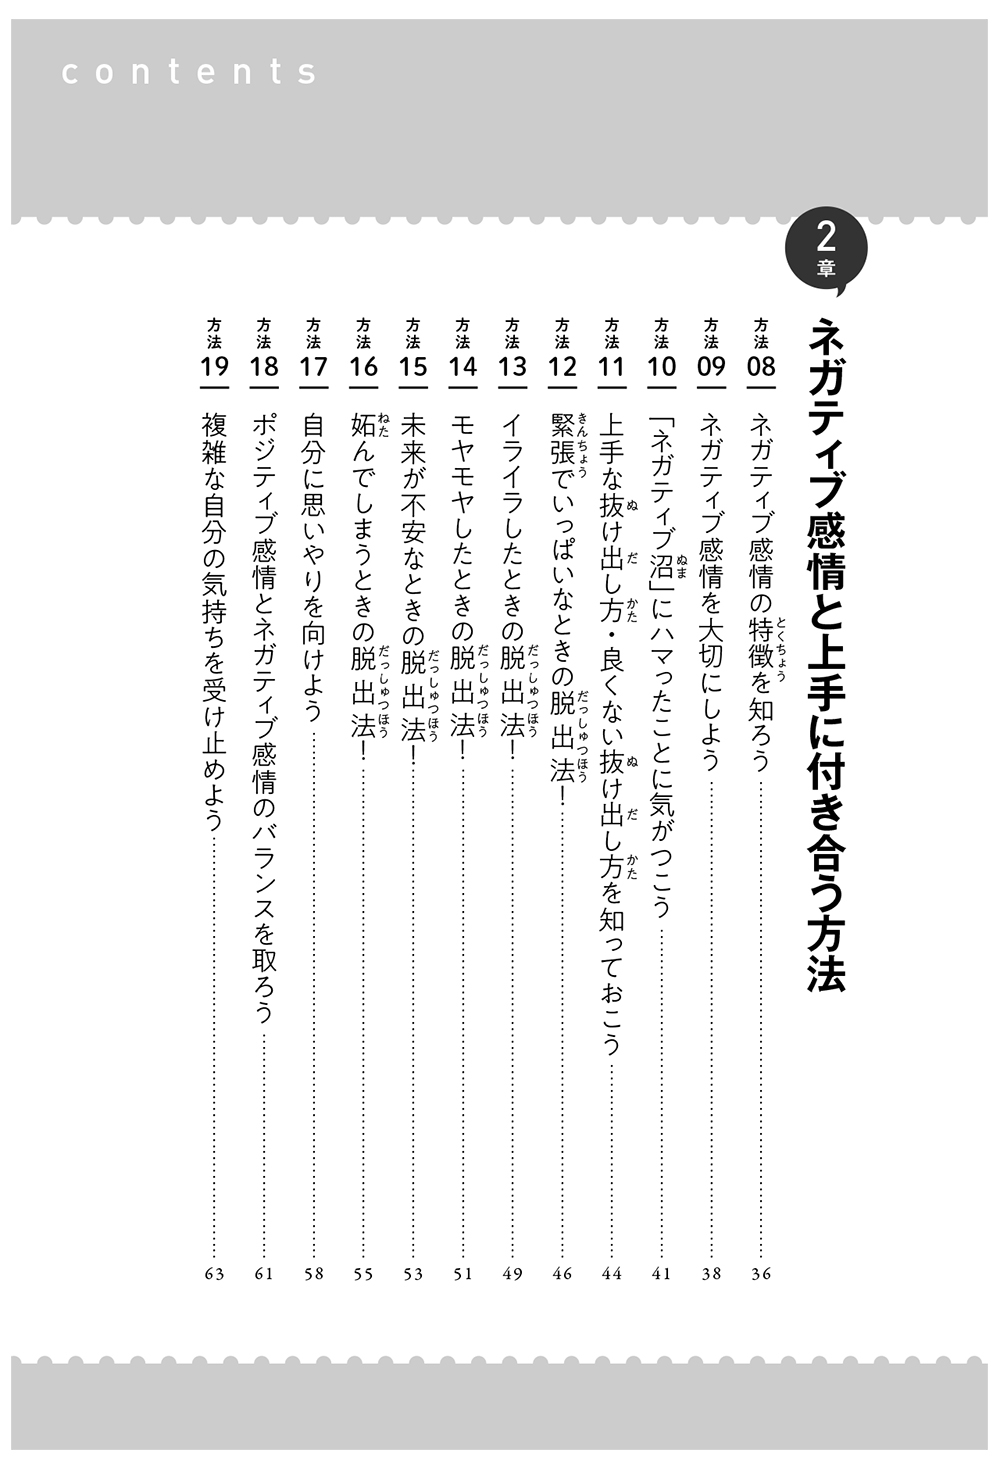 contents
2章
ネガティブ感情と上手に付き合う方法
方法08 ネガティブ感情の特徴を知ろう 36
とくちょう
方法09 ネガティブ感情を大切にしよう 38
方法10 「ネガティブ沼」にハマったことに気がつこう 41
ぬま
方法11 上手な抜け出し方・良くない抜け出し方を知っておこう 44
ぬ だ かた ぬ だ かた
方法12 緊張でいっぱいなときの脱出法！ 46
きんちょう だっしゅつほう
方法13 イライラしたときの脱出法！ 49
だっしゅつほう
方法14 モヤモヤしたときの脱出法！ 51
だっしゅつほう
方法15 未来が不安なときの脱出法！ 53
だっしゅつほう
方法16 妬んでしまうときの脱出法！ 55
ねた だっしゅつほう
方法17 自分に思いやりを向けよう 58
方法18 ポジティブ感情とネガティブ感情のバランスを取ろう 61
方法19 複雑な自分の気持ちを受け止めよう 63